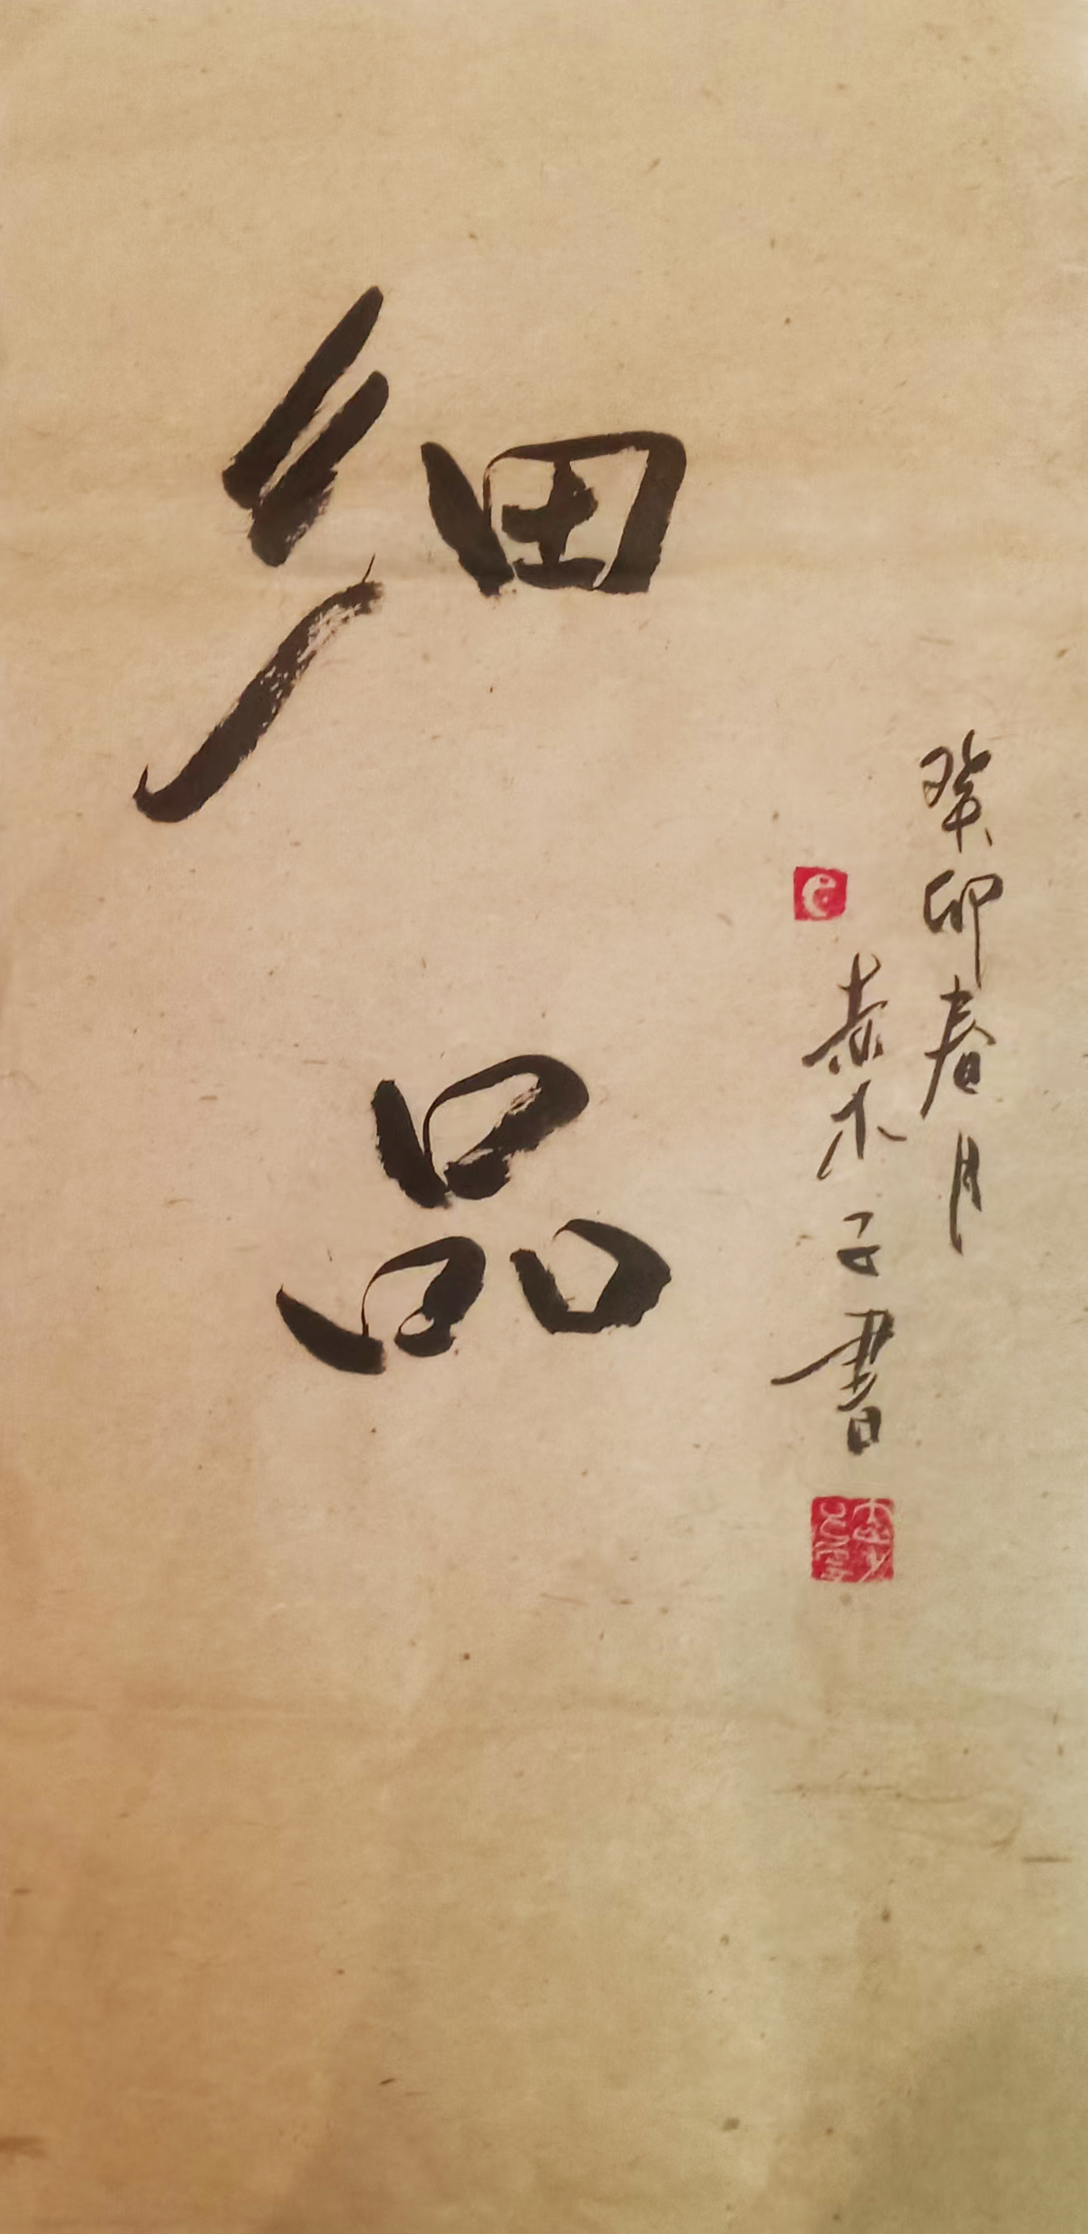 细品
癸卯春月
赤木子書